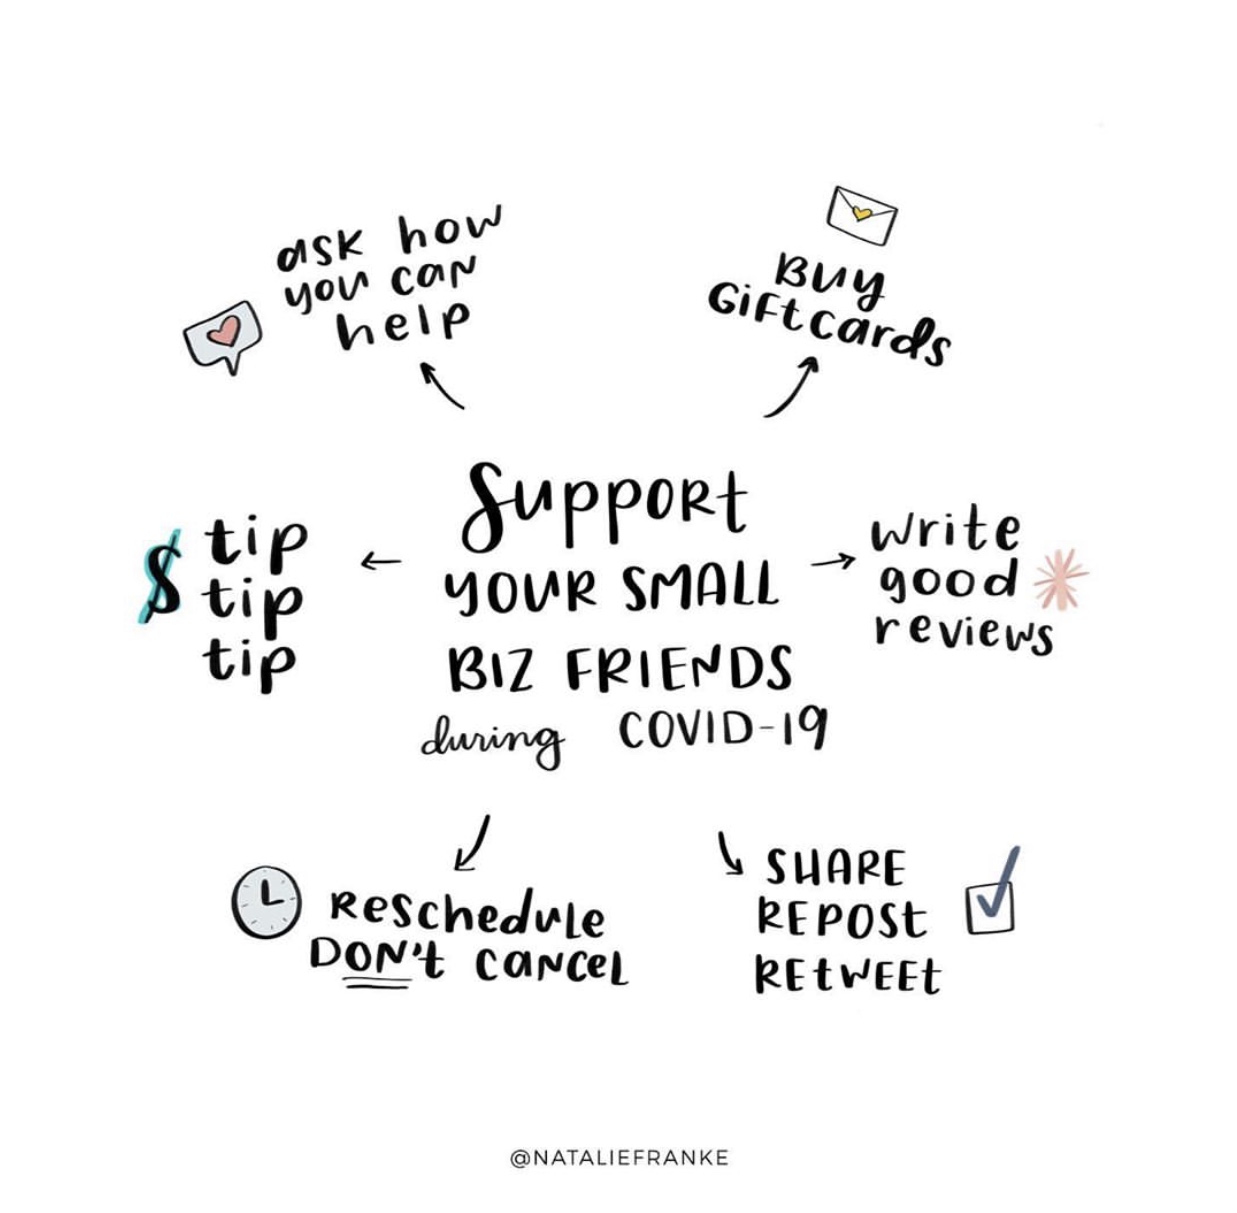 ask how
you can
help
BUY
GiFtcards
Support
YOUR SMALL
BIZ FRIENDS
during COVID-19
$ tip
tip
tip
write
good
reviews
Reschedule
DON't cancel
SHARE
REPOSt
REtWEEt
@NATALIEFRANKE